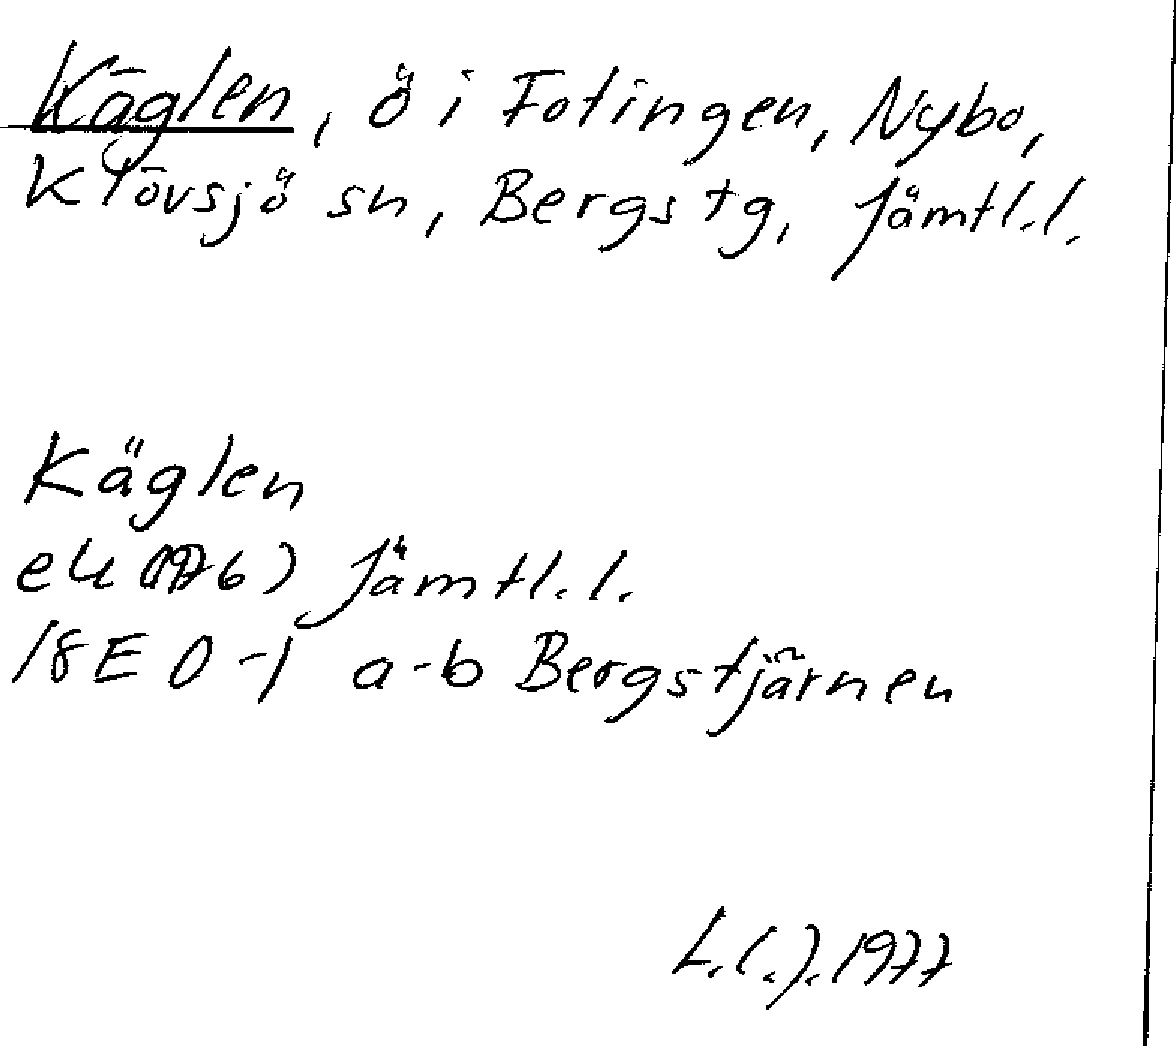 Käglen, ö i Fotingen, Nybo,
Klövsjö sn, Bergs tg, Jämtl.l.
Käglen
ek (1976) Jämtl.l.
18E 0-1 a-b Bergstjärnen
1977